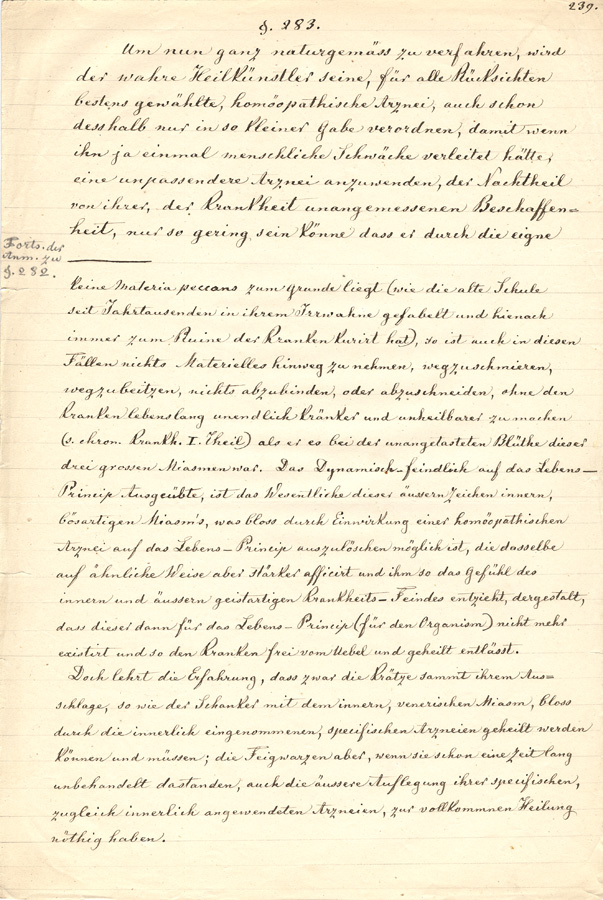 239.
§. 283.
Um nun ganz naturgemäss zu verfahren, wird
der wahre Heilkünstler seine, für alle Rücksichten
bestens gewählte, homöopathische Arznei, auch schon
desshalb nur in so kleiner Gabe verordnen, damit wenn
ihn ja einmal menschliche Schwäche verleitet hätte,
eine unpassendere Arznei anzuwenden, der Nachtheil
von ihrer, der Krankheit unangemessenen Beschaffen=
heit, nur so gering sein könne dass er durch die eigne
Forts. der
Anm. zu
§. 282.
keine Materia peccans zum grunde liegt (wie die alte Schule
seit Jahrtausenden in ihrem Irrwahne gefabelt und hienach
immer zum Ruine der Kranken kurirt hat), so ist auch in diesen
Fällen nichts Materielles hinweg zu nehmen, wegzuschmieren,
wegzubeitzen, nichts abzubinden, oder abzuschneiden, ohne den
Kranken lebenslang unendlich kränker und unheilbarer zu machen
(s. chron. Krankh. I. Theil) als er es bei der unangetasteten Blüthe dieser
drei grossen Miasmen war. Das Dynamisch-feindlich auf das Lebens-
Princip Ausgeübte, ist das Wesentliche dieser äussern Zeichen innern,
bösartigen Miasm's, was bloss durch Einwirkung einer homöopathischen
Arznei auf das Lebens-Princip auszulöschen möglich ist, die dasselbe
auf ähnliche Weise aber stärker afficirt und ihm so das Gefühl des
innern und äussern geistartigen Krankheits-Feindes entzieht, dergestalt,
dass dieser dann für das Lebens-Princip (für den Organism) nicht mehr
existirt und so den Kranken frei vom Uebel und geheilt entlässt.
Doch lehrt die Erfahrung, dass zwar die Krätze sammt ihrem Aus=
schlage, so wie der Schanker mit dem innern, venerischen Miasm, bloss
durch die innerlich eingenommenen, specifischen Arzneien geheilt werden
können und müssen; die Feigwarzen aber, wenn sie schon eine Zeit lang
unbehandelt dastanden, auch die äussere Auflegung ihrer specifischen,
zugleich innerlich angewendeten Arzneien, zur vollkommnen Heilung
nöthig haben.